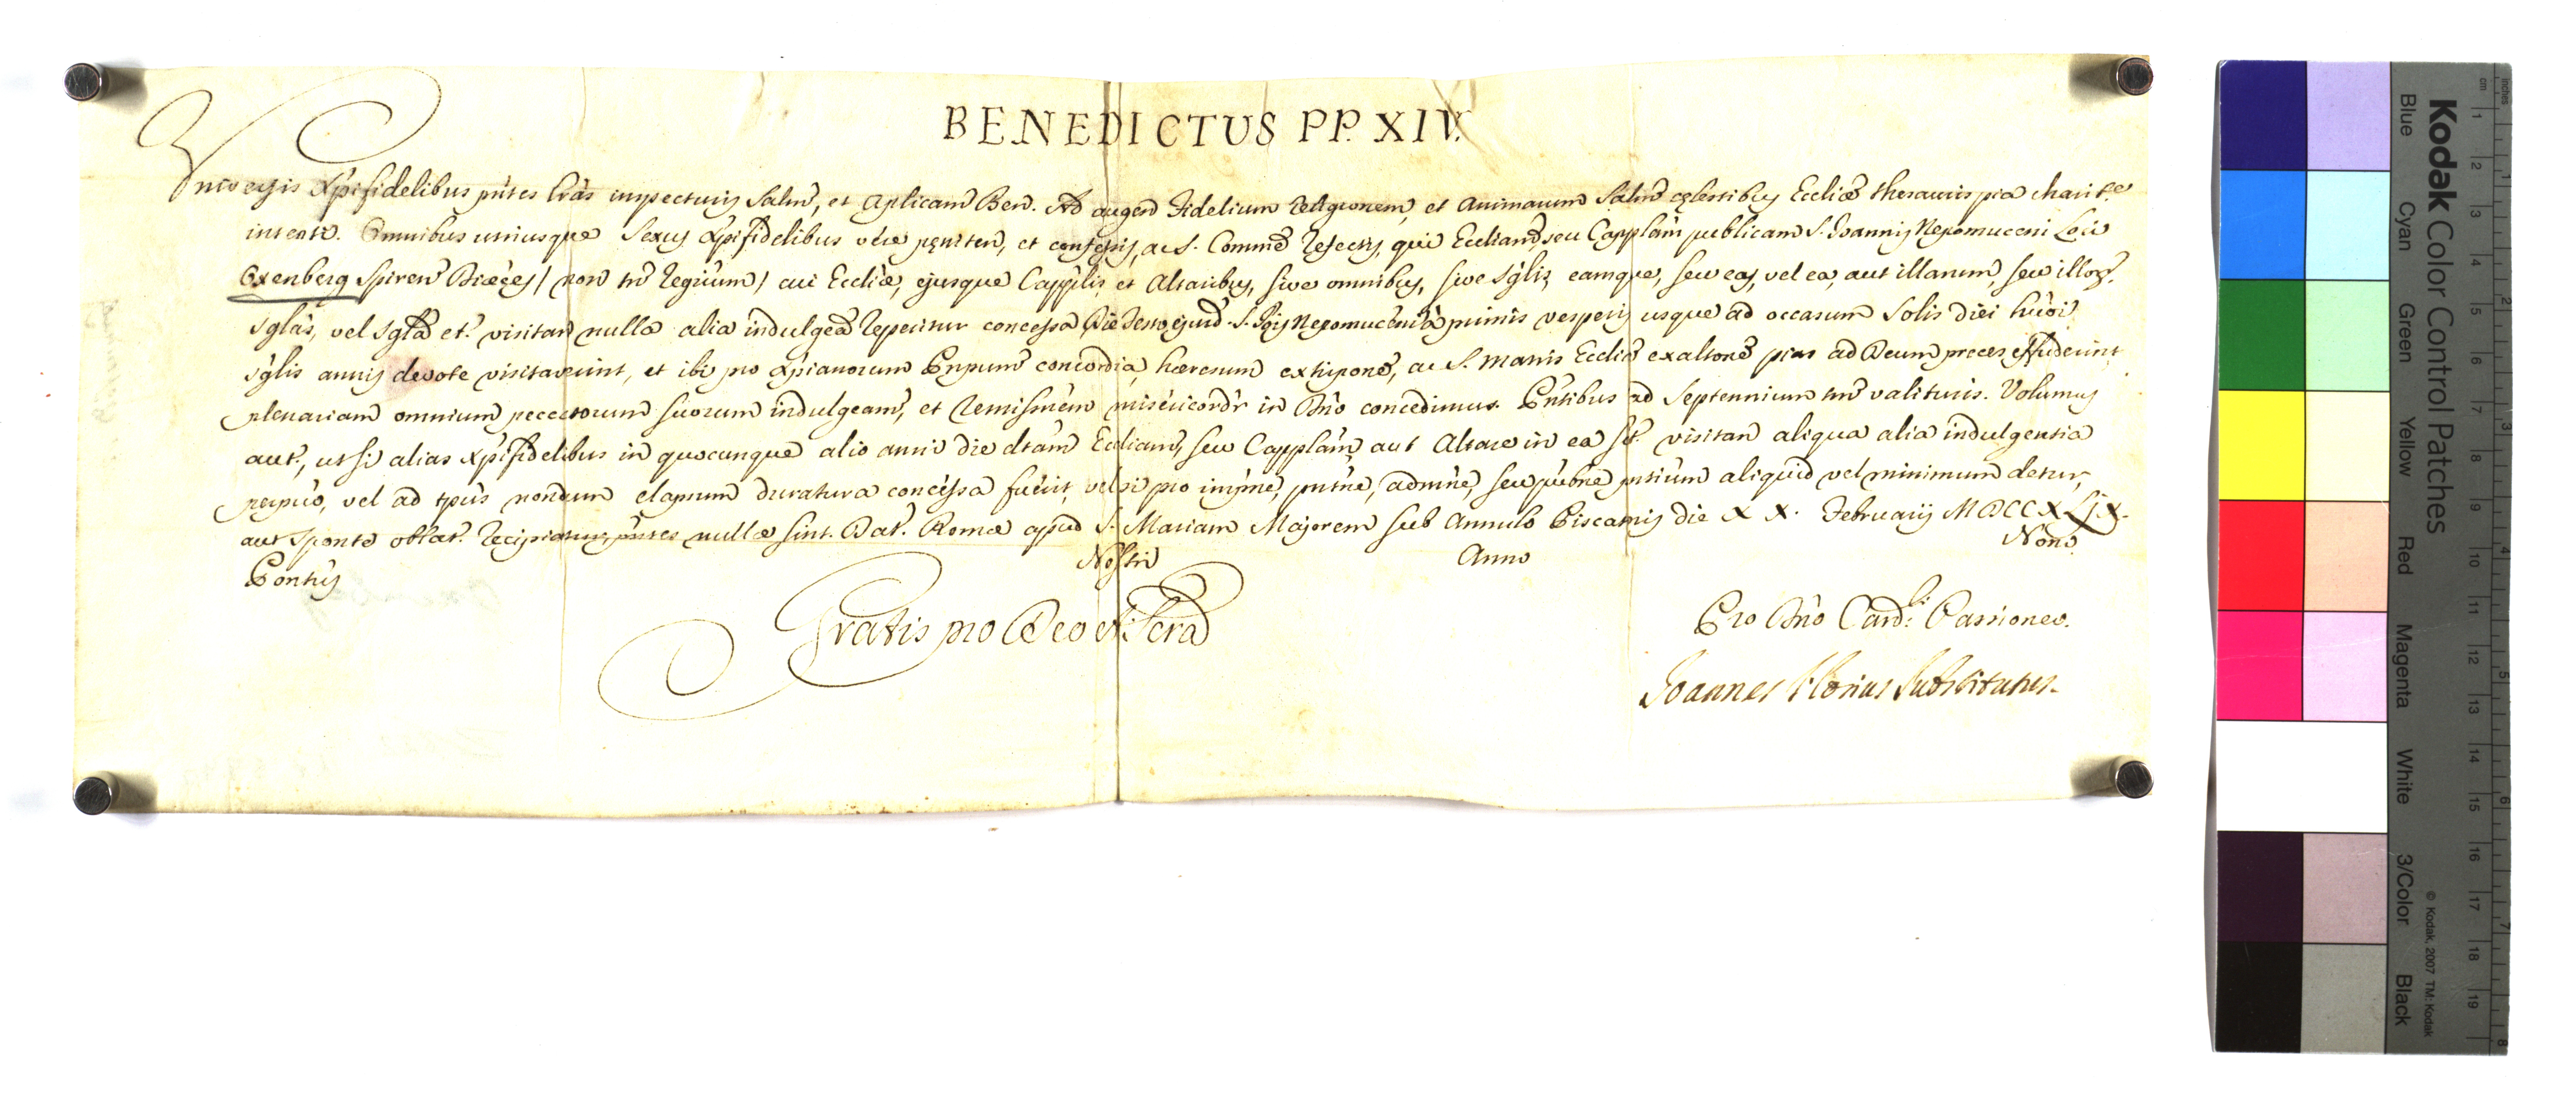 BENEDICTUS PP. XIV.
Universis Xpifidelibus pntes lras inspecturis Salm, et Aplicam Ben. Ad augen Fidelium Religionem, et Animarum Salm cęlestibus Eccliæ thesauris pia charit.e
intenti. Omnibus utriusque Sexus Xpifidelibus vere pęniten, et confessis, ac S. Comme refectis, qui Eccliam, seu Capplam publicam S. Joannis Nepomuceni Loci
Oxenberg Spiren Diæces / non tn Regrium / cui Eccliæ, ejusque Cappllis, et Altaribus, sive omnibus, sive sglis, eamque, seu eas, vel ea, aut illarum, seu illoz.
Sglas, vel Sgla et. visitan nulla alia indulgea reperitur concessa Die Festo ejusd. S. Jois Nepomuceni a primis vesperis usque ad occasum Solis diei hmoi
sglis annis devote visitaverint, et ibi pro Xpianorum Pnpum concordia, hæresum extirpone, ac S. Matris Eccliæ exaltone pias ad Deum preces effuderint
plenariam omnium peccatorum suorum indulgeam, et remissnem misericordr in Dno concedimus. Pntibus ad Septennium tm valituris. Volumus
aut., ut si alias Xpifidelibus in quocunque alio anni die dtam Eccliam, seu Capplam, aut Altare in ea st. visitan aliqua alia indulgentia
perpuo, vel ad tpus nondum elapsum duratura concessa fuerit, vel si pro impne, pntne, admne, seu pubne pntium aliquid vel minimum detur,
aut sponte oblat. recipiatur, pntes nullæ sint. Dat. Romæ apud S. Mariam Majorem sub Annulo Piscatoris die XX. Februarij MDCCXLIX.
Pontus Nostri Anno Nono
Gratis pro Deo et Scra
Pro Dno Card.li Passioneo.
Joannes Florius Substitutus.
Kodak Color Control Patches
Blue Cyan Green Yellow Red Magenta White 3/Color Black
© Kodak, 2007 TM: Kodak
inches 1 2 3 4 5 6 7 8
cm 1 2 3 4 5 6 7 8 9 10 11 12 13 14 15 16 17 18 19